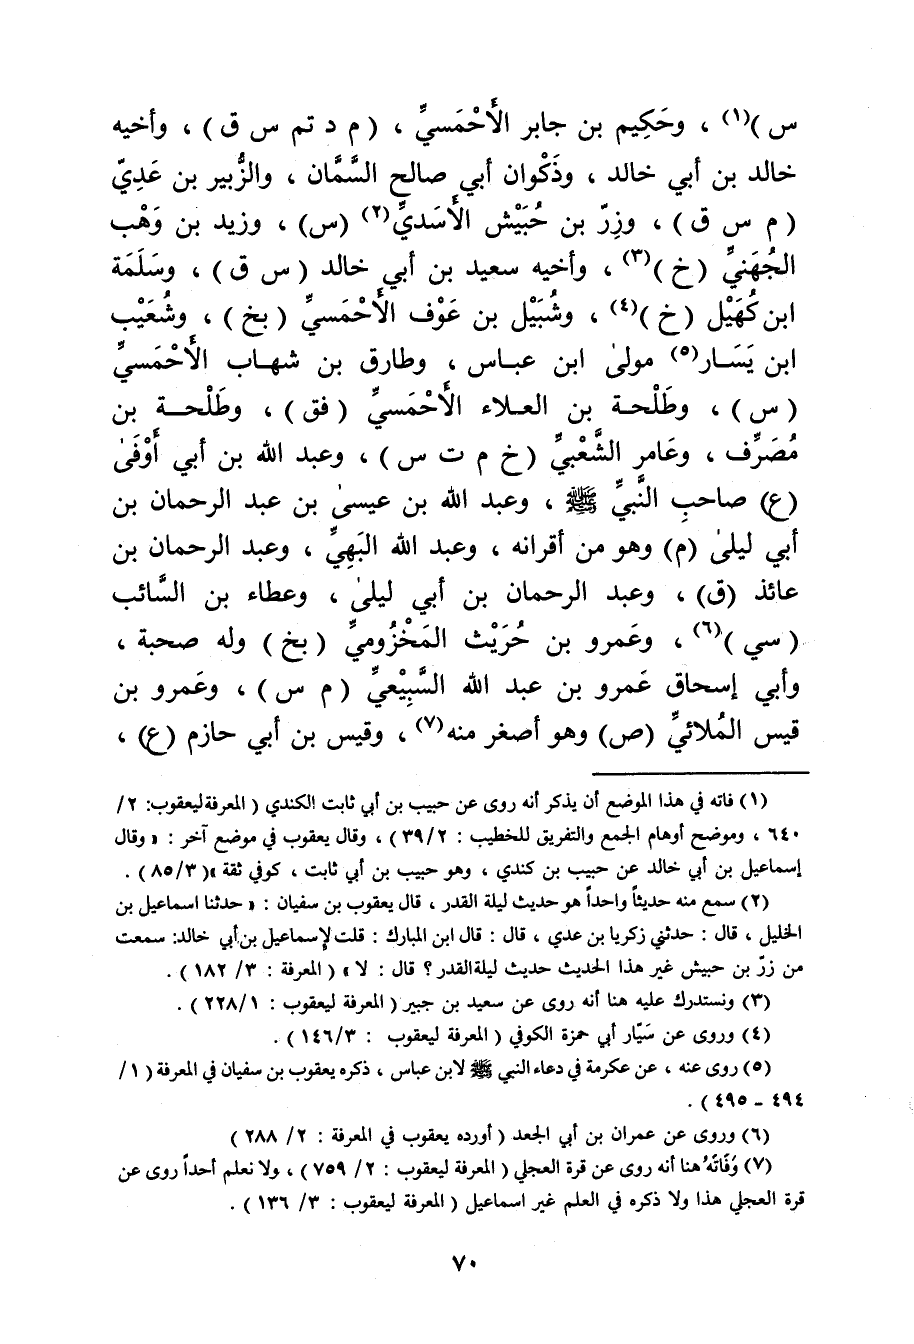 س )(١) ، وحَكِيم بن جابر الأَحْمَسيِّ ، ( م د تم س ق ) ، وأخيه
خالد بن أبي خالد ، وذَكْوان أبي صالح السَّمَّان ، والزُّبير بن عَدِيّ
( م س ق ) ، وزِرّ بن حُبَيْش الأَسَديِّ(٢) (س) ، وزيد بن وَهْب
الجُهَنيِّ ( خ )(٣) ، وأخيه سعيد بن أبي خالد ( س ق ) ، وسَلَمَة
ابن كُهَيْل ( خ )(٤) ، وشُبَيْل بن عَوْف الأَحْمَسيِّ ( بخ ) ، وشُعَيْب
ابن يَسَـار(٥) مولىٰ ابن عبـاس ، وطارق بن شهـاب الأَحْمَسيِّ
( س ) ، وطَلْحـة بن العـلاء الأَحْمَسيِّ ( فق ) ، وطَلْحـــة بن
مُصَرِّف ، وعَامر الشَّعْبيِّ ( خ م ت س ) ، وعبد الله بن أبي أَوْفَىٰ
(ع) صاحبِ النَّبيِّ ﷺ ، وعبد الله بن عيسىٰ بن عبد الرحمان بن
أبي ليلىٰ (م) وهو من أقرانه ، وعبد الله البَهِيِّ ، وعبد الرحمان بن
عائذ (ق) ، وعبد الرحمان بن أبي ليلىٰ ، وعطاء بن السَّائب
( سي )(٦) ، وعَمرو بن حُرَيْث المَخْزُوميِّ ( بخ ) وله صحبة ،
وأبي إسحاق عَمرو بن عبد الله السَّبِيْعيِّ ( م س ) ، وعَمرو بن
قيس المُلائيِّ (ص) وهو أصغر منه(٧) ، وقيس بن أبي حازم (ع) ،
(١) فاته في هذا الموضع أن يذكر أنه روى عن حبيب بن أبي ثابت الكندي ( المعرفة ليعقوب: ٢/
٦٤٠ ، وموضح أوهام الجمع والتفريق للخطيب : ٣٩/٢ ) ، وقال يعقوب في موضع آخر : « وقال
إسماعيل بن أبي خالد عن حبيب بن كندي ، وهو حبيب بن أبي ثابت ، كوفي ثقة »( ٨٥/٣ ) .
(٢) سمع منه حديثاً واحداً هو حديث ليلة القدر ، قال يعقوب بن سفيان : « حدثنا اسماعيل بن
الخليل ، قال : حدثني زكريا بن عدي ، قال : قال ابن المبارك : قلت لإسماعيل بن أبي خالد: سمعت
من زرّ بن حبيش غير هذا الحديث حديث ليلة القدر ؟ قال : لا » ( المعرفة : ٣/ ١٨٢ ) .
(٣) ونستدرك عليه هنا أنه روى عن سعيد بن جبير ( المعرفة ليعقوب : ٢٢٨/١ ) .
(٤) وروى عن سَيّار أبي حمزة الكوفي ( المعرفة ليعقوب : ١٤٦/٣ ) .
(٥) روى عنه ، عن عكرمة في دعاء النبي ﷺ لابن عباس ، ذكره يعقوب بن سفيان في المعرفة ( ١/
٤٩٤ - ٤٩٥ ) .
(٦) وروى عن عمران بن أبي الجعد ( أورده يعقوب في المعرفة : ٢/ ٢٨٨ )
(٧) وُفَاتَهُ هنا أنه روى عن قرة العجلي ( المعرفة ليعقوب : ٢/ ٧٥٩ ) ، ولا نعلم أحداً روى عن
قرة العجلي هذا ولا ذكره في العلم غير اسماعيل ( المعرفة ليعقوب : ٣/ ١٣٦ ) .
٧٠